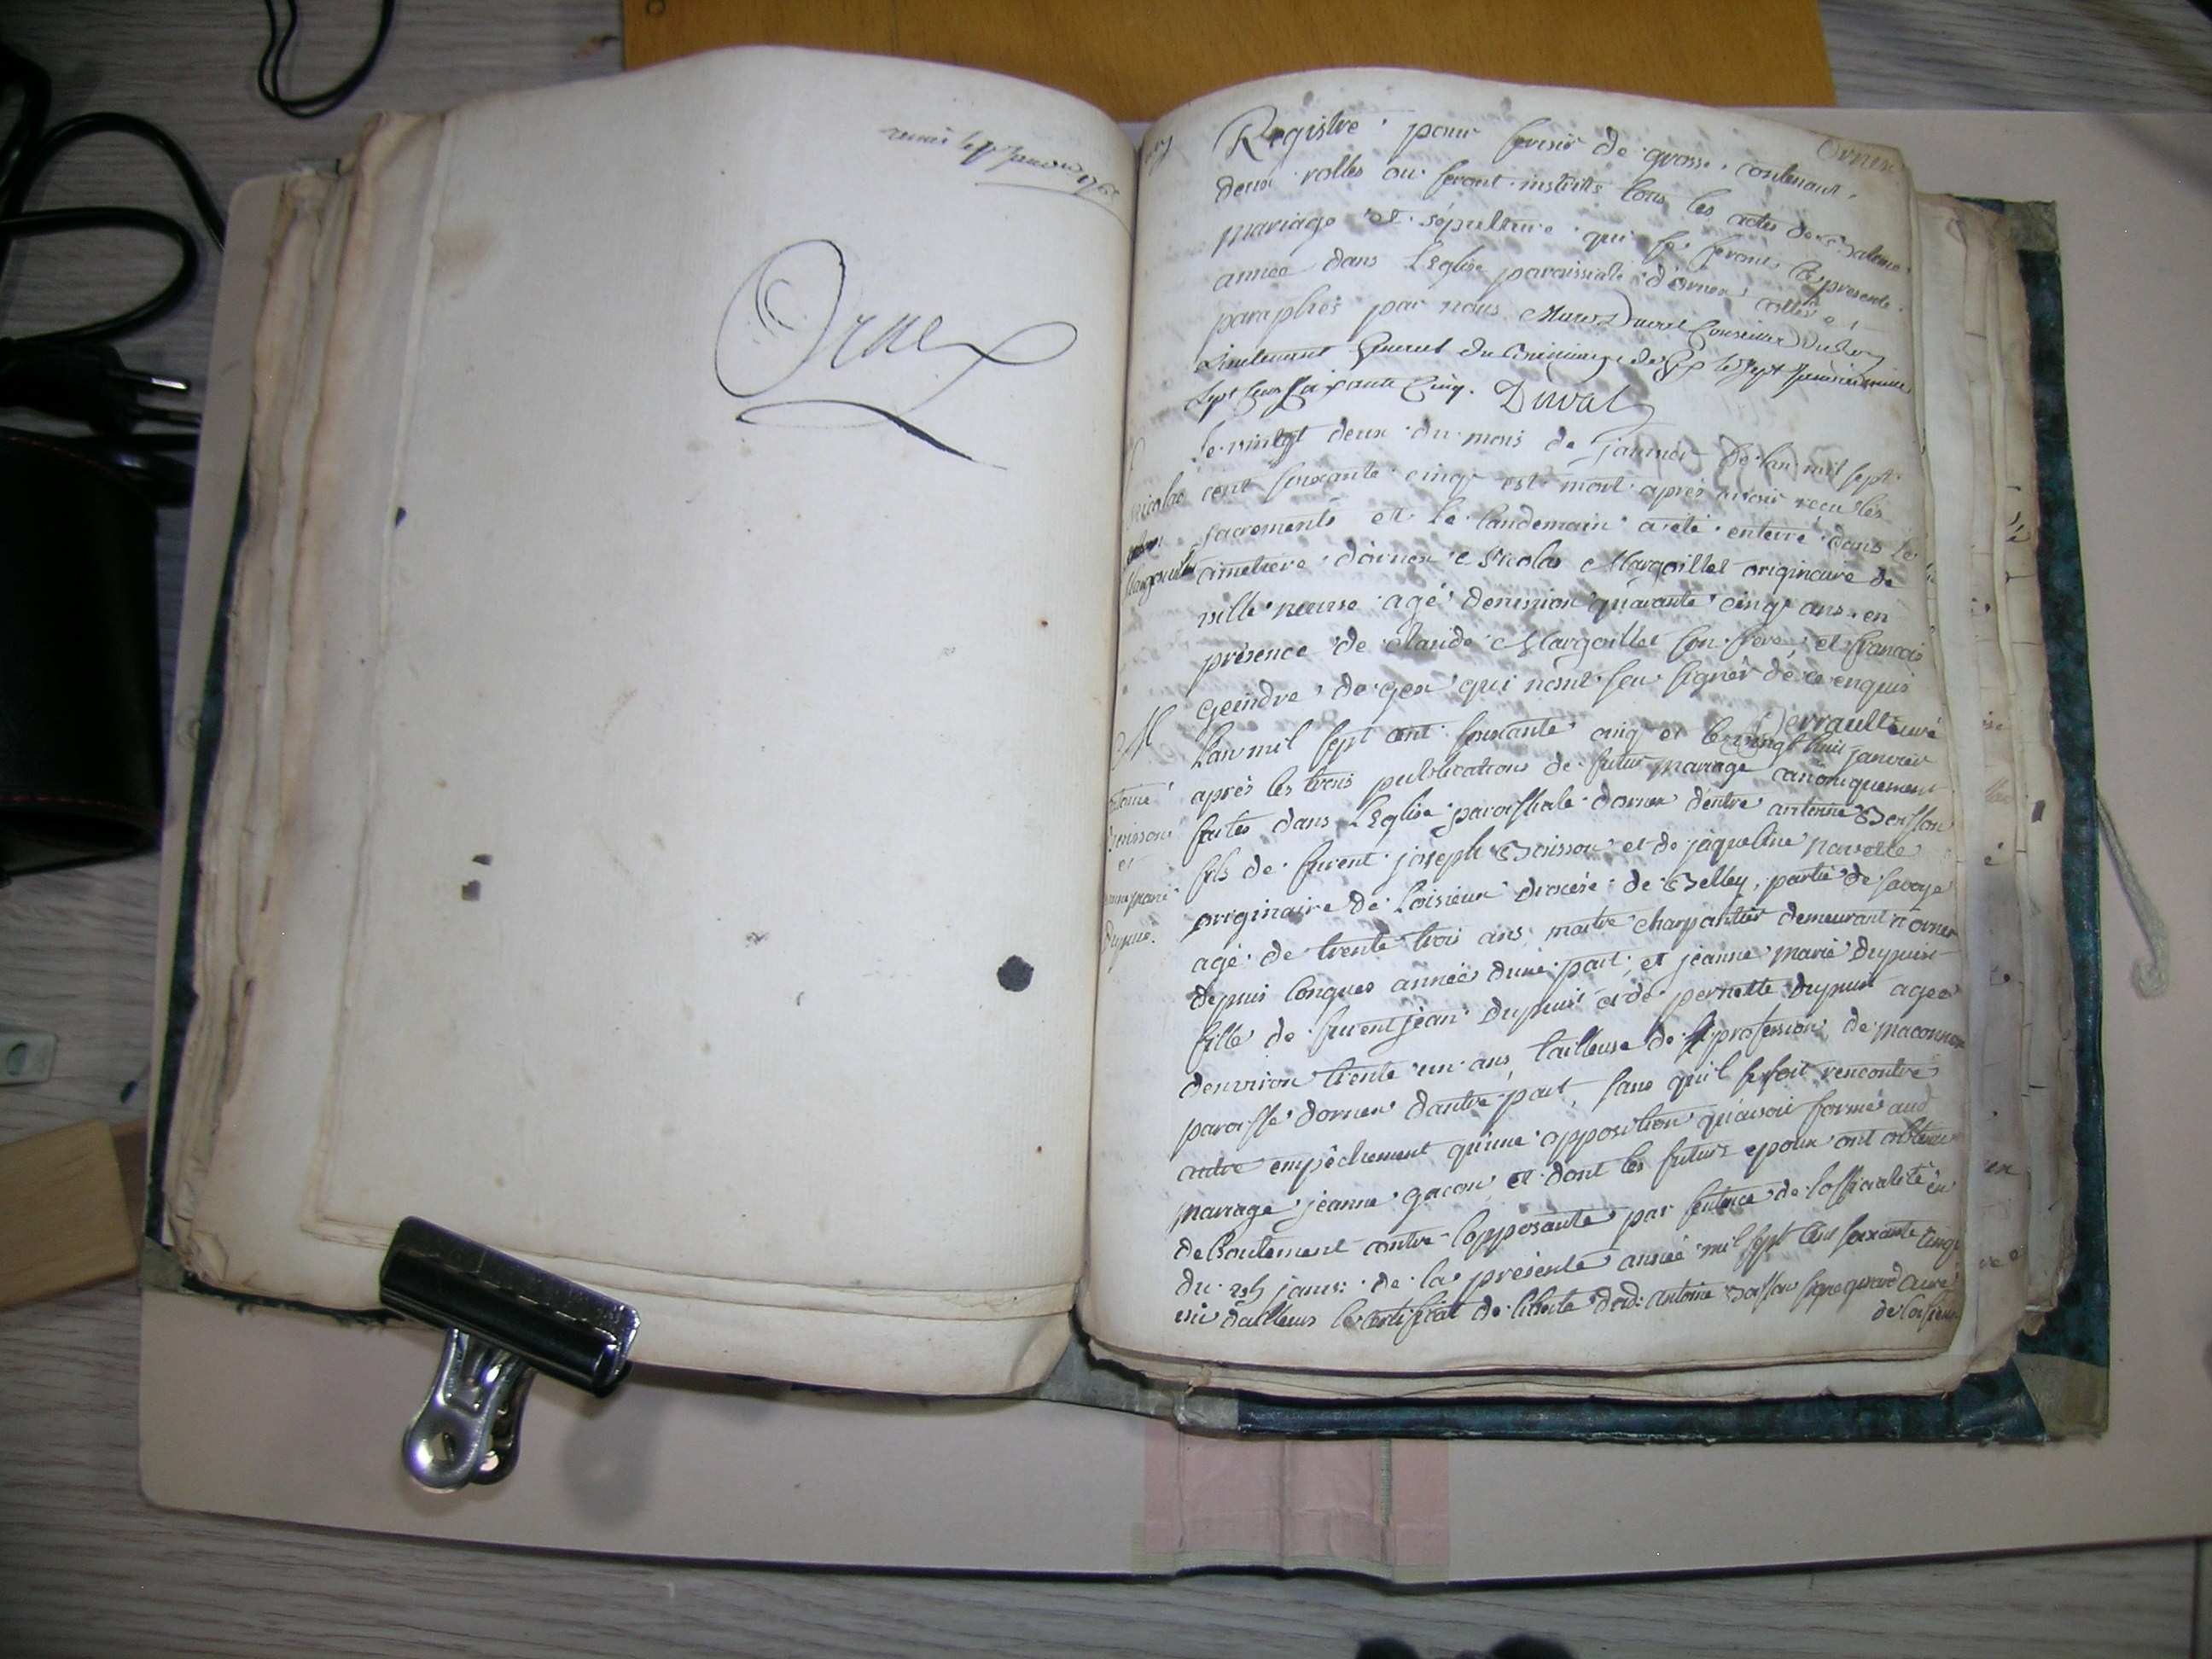 Ornex
Ornex
Registre pour servir de grosse contenant
deux rolles ou seront inscritts tous les actes de Bateme
mariage et sépulture qui se feront la presente
année dans L'Eglise paroissiale d'ornex cottés et
paraphés par nous Marc Duval Conseiller Du Roy
Lieutenant General du Bailliage de Gex le sept Janvier mil
sept cens soixante Cinq. Duval
Le vingt deux du mois de janvier de lan mil sept
cent soixante cinq est mort après avoir recu les
sacrements et le landemain a eté enterré dans le
cimetiere d'ornex Nicolas Margoillet originaire de
ville neuve agé denviron quarante cinq ans en
présence de Claude Margoillet son frere, et francois
Geindre de gex qui nont seu signer de ce enquis
Perrault curé
Nicolas
Margoillet
M
Lan mil sept cent soixante cinq et le vingt huit janvier
après les trois publications de futur mariage canoniquement
faites dans L'Eglise paroissiale dornex dentre antoine Boisson
fils de furent joseph Boisson et de jaqueline navette
originaire de Loisieux diocése de Belley, partie de Savoye
agé de trente trois ans, maitre charpantier demeurant a ornex
depuis longues années dune part; et jeanne marie Dupuis
fille de furent jean Dupuis et de pernette Dupuis agée
denviron trente un ans, tailleuse de profession de maconnex
paroisse dornex dautre part, sans qu'il se soit rencontré
autre empêchement qu'une opposition qu'avoit formé aud
mariage jeanne gacon et dont les futurs epoux ont obtenu
deboutement contre l'opposante par sentence de lofficialité en
du 25 janv: de la présente année mil sept cent soixante cinq
vû dailleurs le certificat de liberté dud: antoine Boisson signé curé
de loisieux
Boisson
et
jeanne marie
Dupuis.